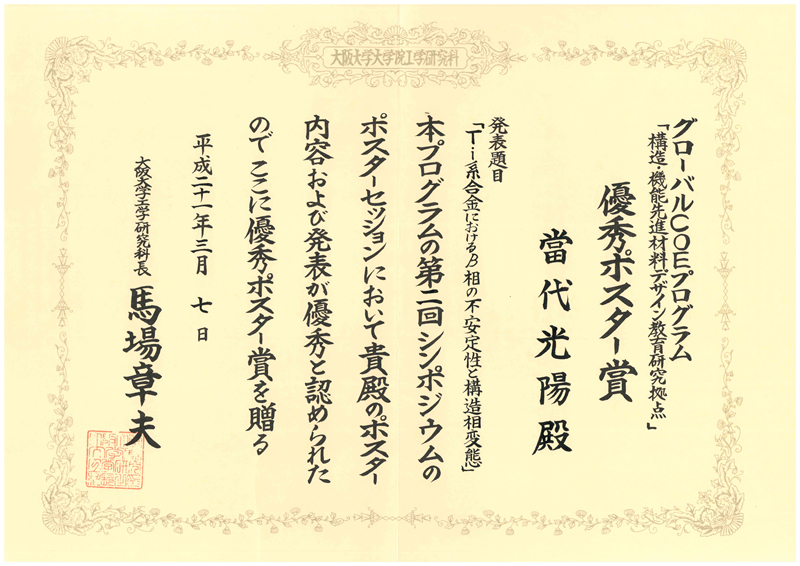 大阪大学大学院工学研究科
グローバルCOEプログラム
「構造・機能先進材料デザイン教育研究拠点」
優秀ポスター賞
當代光陽殿
発表題目
「Ti系合金におけるβ相の不安定性と構造相変態」
本プログラムの第二回シンポジウムの
ポスターセッションにおいて貴殿のポスター
内容および発表が優秀と認められた
のでここに優秀ポスター賞を贈る
平成二十一年三月七日
大阪大学工学研究科長
馬場章夫